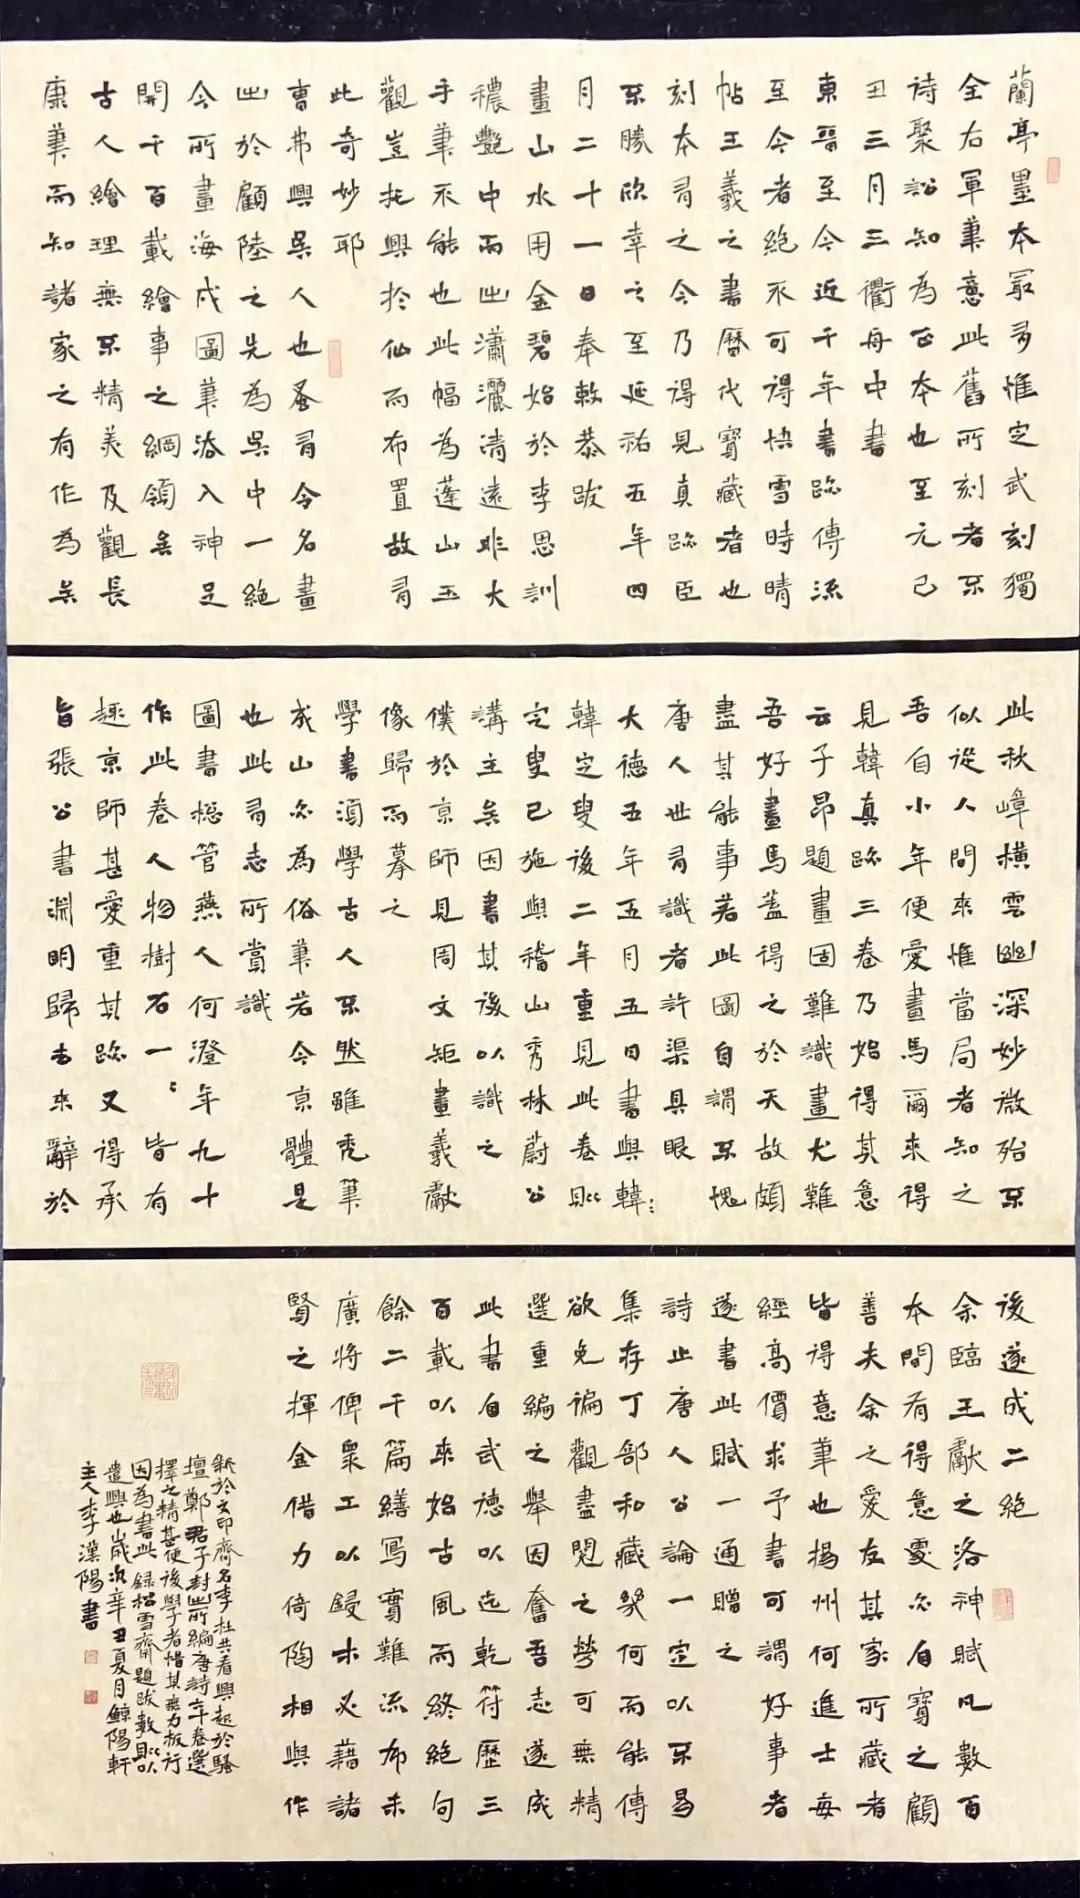 蘭亭墨本冣多惟定武刻獨
全右軍筆意此舊所刻者不
诗聚訟知為正本也至元己
丑三月三衢舟中書
東晉至今近千年書跡傳流
至今者絕不可得快雪時晴
帖王羲之書曆代寶藏者也
刻本有之今乃得見真跡臣
不勝欣幸之至延祐五年四
月二十一日奉敕恭跋
畫山水用金碧始於李思訓
穠艷中而出瀟灑清遠非大
手筆不能也此幅為蓬山玉
觀豈托興於仙而布置故有
此奇妙耶
曹弗興吳人也蚤有令名畫
出於顧陸之先為吳中一絕
今所畫海戍圖筆法入神足
開千百載繪事之綱領矣
古人繪理無不精美及觀長
康筆而知諸家之有作為矣
此秋嶂橫雲幽深妙微殆不
似從人間來惟當局者知之
吾自小年便愛畫馬爾來得
見韓真跡三卷乃始得其意
云子昂題畫固難識畫尤難
吾好畫馬蓋得之於天故頗
盡其能事若此圖自謂不愧
唐人世有識者許渠具眼
大德五年五月五日書與韓:
韓定叟後二年重見此卷則
定叟已施與稽山秀林蔚公
溝主矣因書其後以識之
僕於京師見周文矩畫羲獻
像歸而摹之
學書須學古人不然雖禿筆
成山亦為俗筆若今京體是
也此有志所當識
圖書総管燕人何澄年九十
作此卷人物樹石一〻皆有
趣京師甚愛重其跡又得承
旨張公書淵明歸去来辭於
後遂成二絕
余臨王獻之洛神賦凡數百
本間有得意處亦自寶之顧
善夫余之愛友其家所藏者
皆得意筆也揚州何進士每
經高價求予書可謂好事者
遂書此賦一通贈之
詩止唐人公論一定以不易
集存丁部和藏幾何而能傳
欲免徧觀盡閱之勞可無精
選重編之舉因奮吾志遂成
此書自武德以迄乾符歷三
百載以來始古風而終絕句
餘二千篇繕寫實難流布未
廣將俾衆工以鋟木必藉諸
賢之揮金借力倚陶相與作
新於玄印齋名李杜共看興起於騷
壇鄭君子封出所編唐詩六千卷選
擇之精甚便後學者惜其無力板行
因為書此 錄松雪齋題跋數則以
遣興也歲次辛丑夏月鯨陽軒
主人李漢陽書